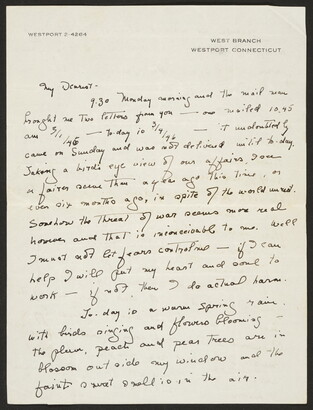 WESTPORT 2-4264
WEST BRANCH
WESTPORT CONNECTICUT
My Dearest -
9.30 Monday morning and the mail man
brought me two letters from you — one mailed 10.45
am 5/1/46 — to-day is — it undoubtedly
came on Sunday and was not delivered until to-day.
Taking a birds eye view of our affairs I am
a fairer scene than a year ago this time, or
even six months ago, in spite of the world unrest.
Somehow the threat of war seems more real
however and that is inconceivable to me. Well
I must not let fears control me — if I can
help I will put my heart and soul to
work — if not then I do actual harm.
To-day is a warm Spring rain
with birds singing and flowers blooming —
the plum, peach and pear trees are in
blossom out side my window and the
faint sweet smell is in the air.